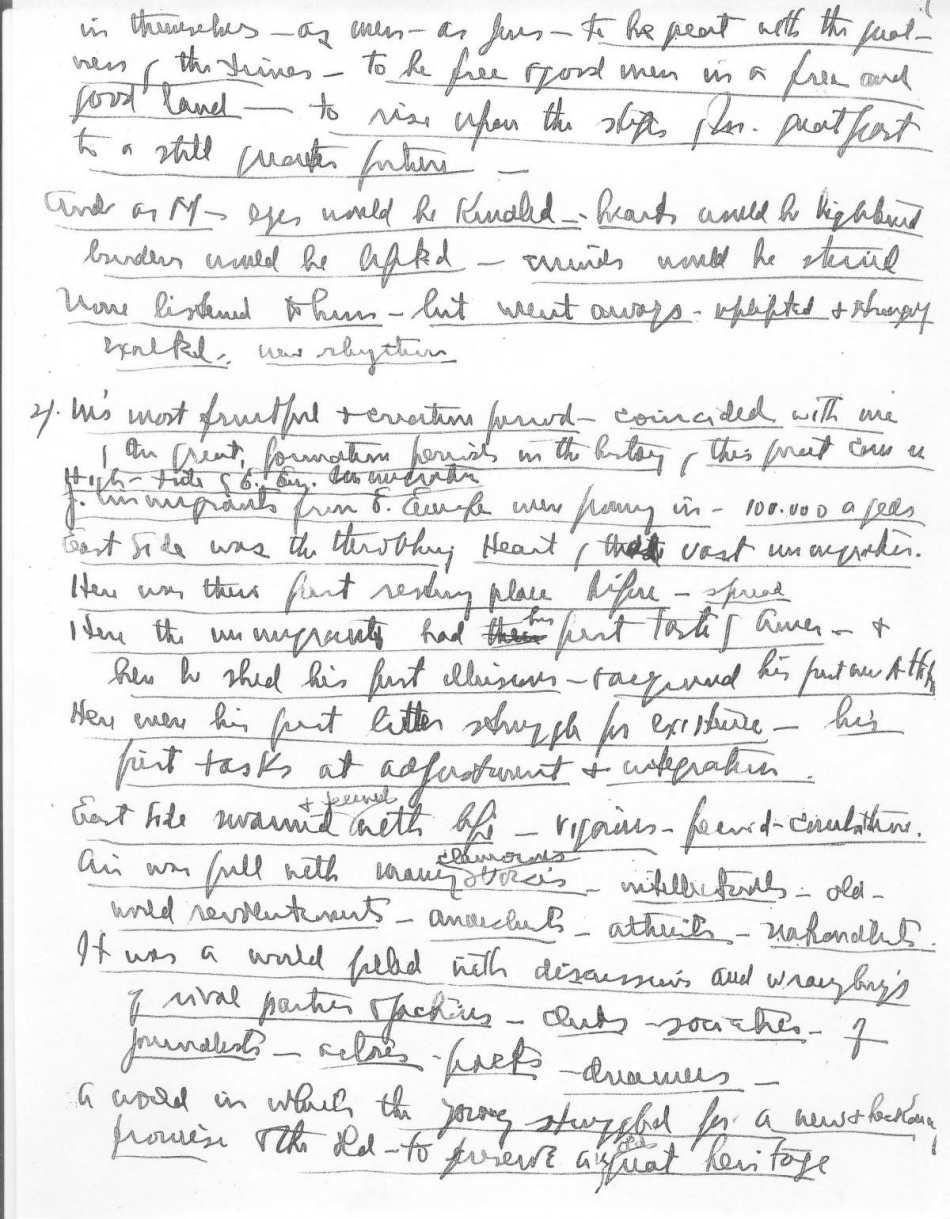 in themselves - as men - as Jews - to be great with the great-
ness of the times - to be free & good men in a free and
good land - to rise upon the steps of our great past
to a still greater future -
And as M - eyes would be kindled - hearts would be lightened
burdens would be lifted - minds would be stirred
None listened to him - but went away - uplifted & strangely
exalted. new rhythm
2/. M's most fruitful & creative period - coincided with one
of the great, formative periods in the history of this great
High-tide of E. Eur. Immigration
J. immigrants from E. Europe were pouring in - 100.000 a year
East Side was the throbbing Heart of vast immigration.
Here was their first resting place before - spread
Here the immigrants had his first taste of Amer - &
here he shed his first illusions - & acquired his first new
Here were his first bitter struggle for existence - his
first tasks at adjustment & integration.
& teemed
East Side swarmed with life - vigorous -
clamorous
Air was full with many voices - intellectuals - old-
world revolutionists - anarchists - atheists - nationalists.
It was a world filled with discussions and wranglings
of rival parties & factions - clubs - societies - of
journalists - actors - poets - dreamers -
A world in which the young struggled for a new & beckoning
promise & the old - to preserve a great heritage